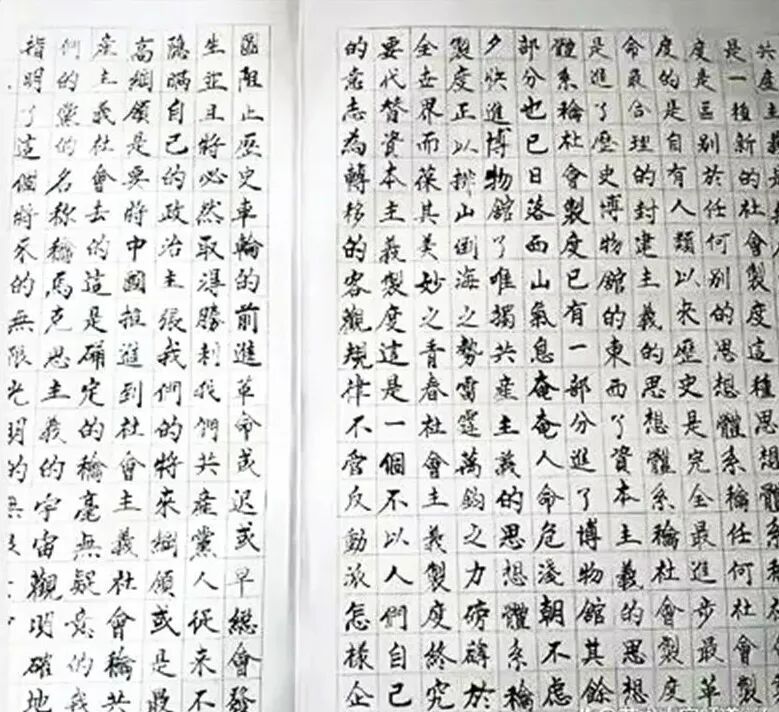 共產主義
是一種新的社會製度這種思想體系
度是區別於任何別的思想體系稐任何社會製
度的是自有人類以來歷史是完全最進步最革
命最合理的封建主義的思想體系稐社會製度
是進了歷史博物館的東西了資本主義的思想
體系稐社會製度已有一部分進了博物館其餘
部分也已日落西山氣息奄奄人命危淺朝不慮
夕快進博物館了唯獨共產主義的思想體系稐
製度正以排山倒海之勢雷霆萬鈞之力磅礴於
全世界而葆其美妙之青春社會主義製度終究
要代替資本主義製度這是一個不以人們自己
的意志為轉移的客觀規律不管反動派怎樣企
圖阻止歷史車輪的前進革命或遲或早總會發
生並且將必然取得勝利我們共產黨人從來不
隱瞞自己的政治主張我們的將來綱領或是最
高綱領是要將中國推進到社會主義社會稐共
產主義社會去的這是確定的稐毫無疑意的我
們的黨的名稱稐馬克思主義的宇宙觀明確地
指明了這個將來的無限光明的